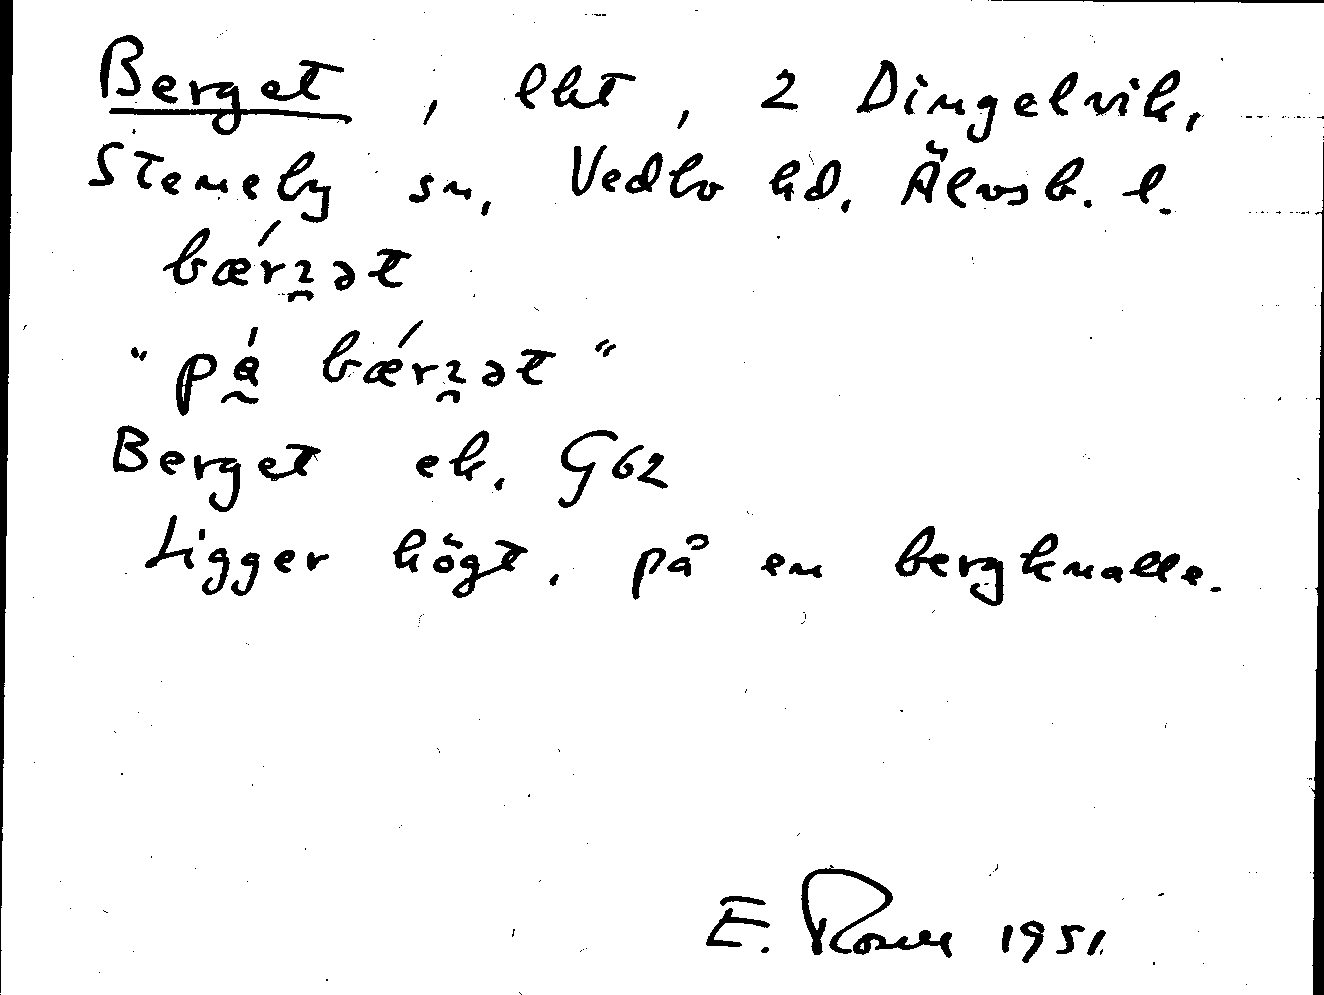 Berget, lht, 2 Dingelvik,
Steneby sn, Vedbo hd, Älvsb. l.
bærɀ̯ət
"på bærɀ̯ət"
Berget ek. G62
Ligger högt, på en bergknalle.
E. 1951